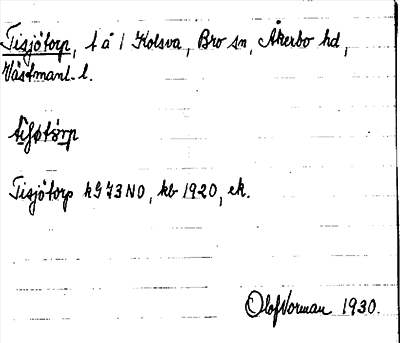 Tisjötorp, t å 1 Kolsva, Bro sn, Åkerbo hd,
Västmanl. l.
Tisjötorp kG 73 NO, kb 1920, ek.
Olof Norman 1930.